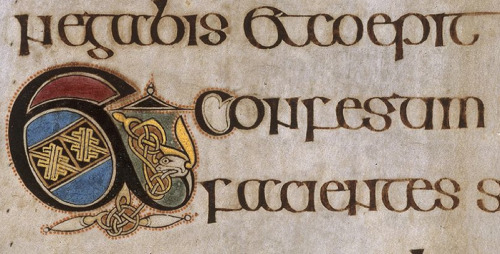 negabis et coepit
Et confestim
facientes s